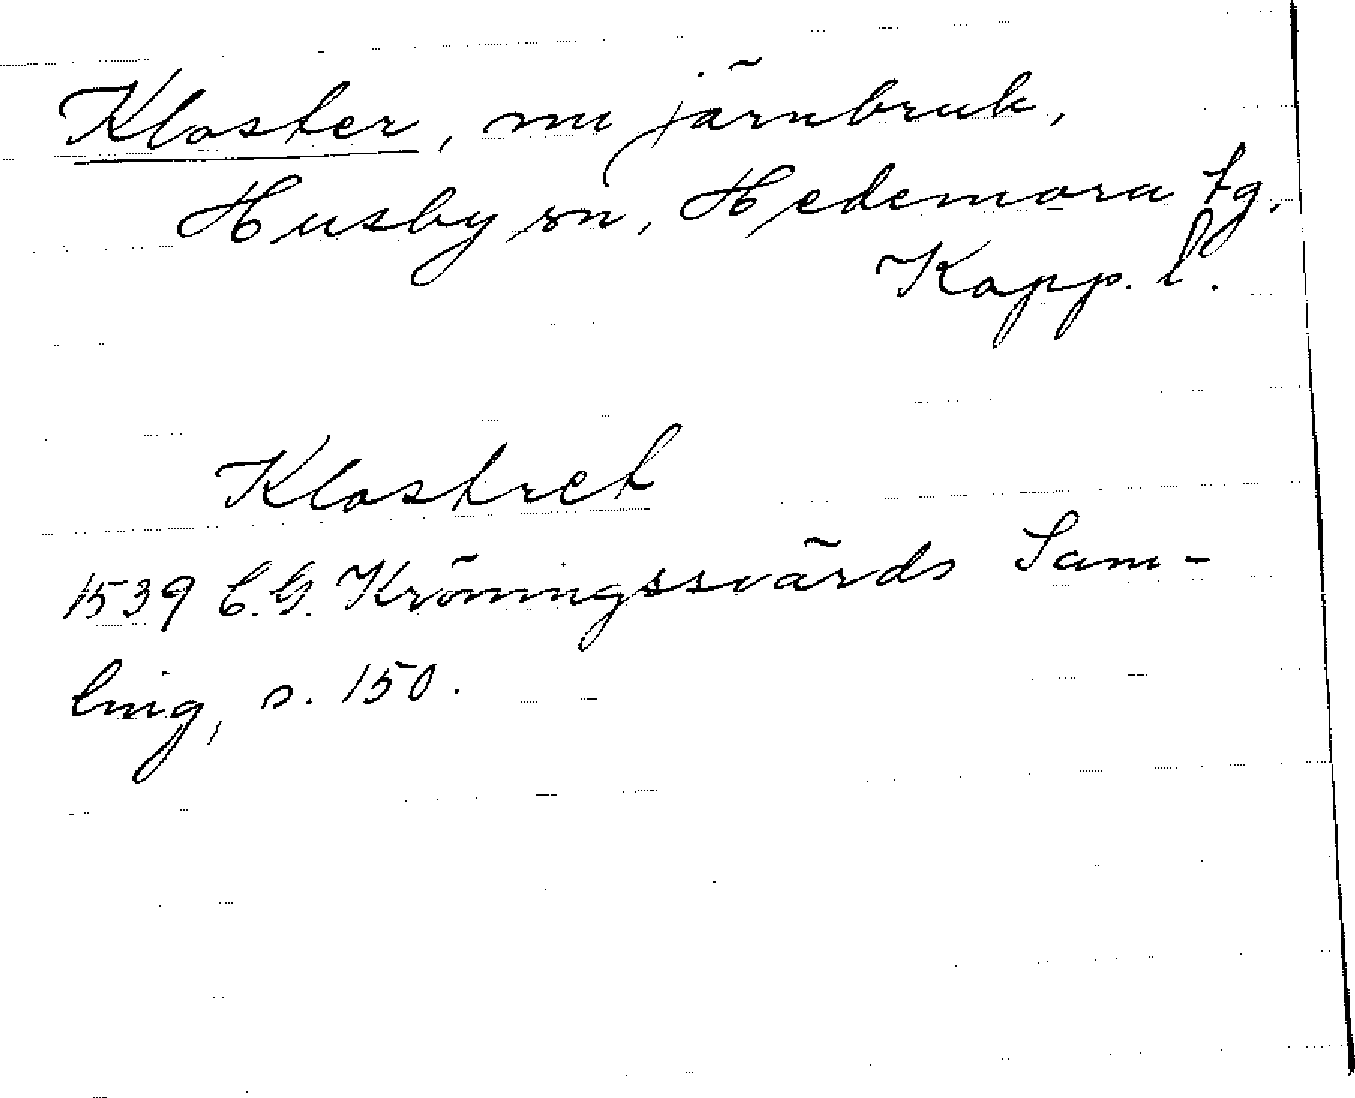 Kloster, nu järnbruk,
Husby sn, Hedemora tg,
Kopp. l.
Klostret
1539 C.G. Kröningssvärds Sam-
ling, s. 150.